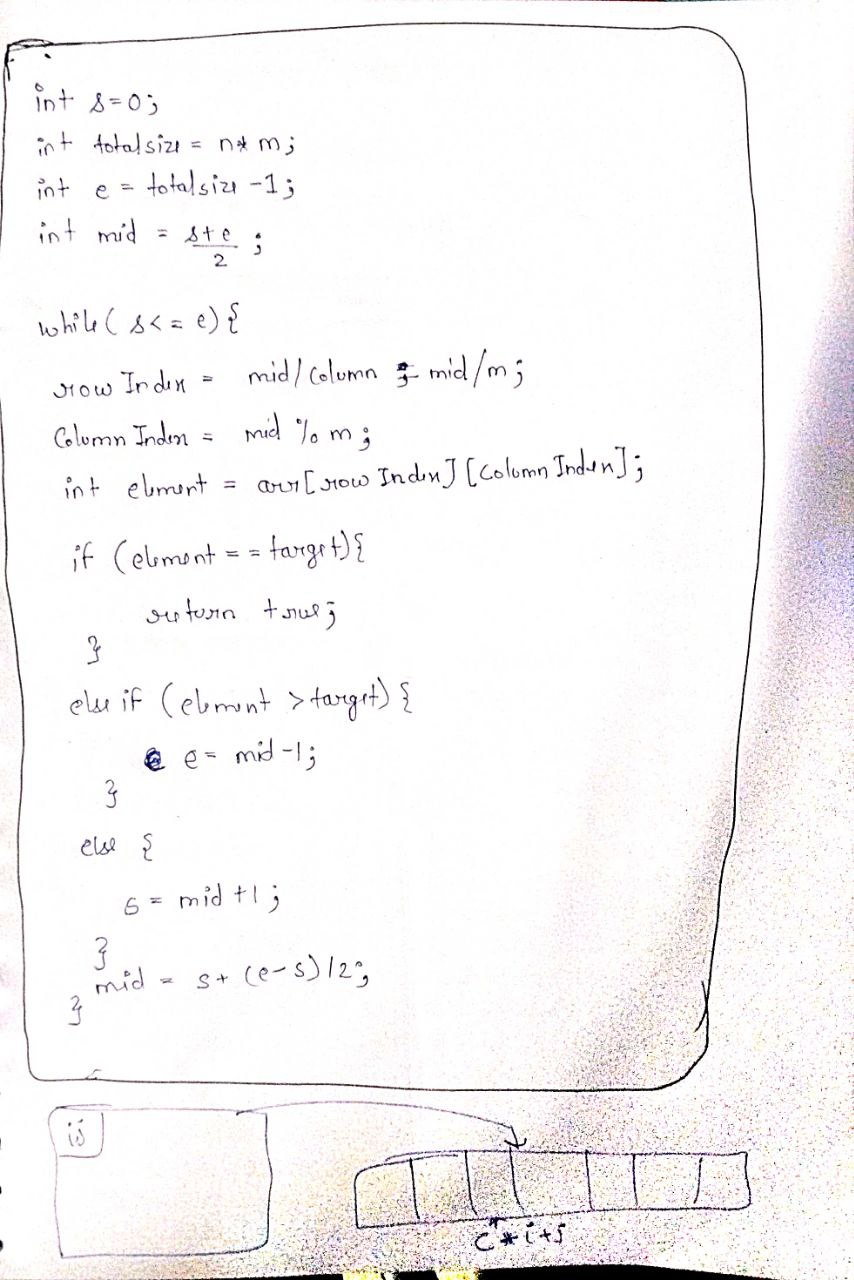 int s=0;
int totalsize = n* m;
int e = totalsize -1;
int mid = s+e/2;
while( s<= e){
row Index = mid/column = mid/m;
Column Index = mid % m;
int element = arr[row Index][Column Index];
if (element == target){
return true;
}
else if (element >target) {
e= mid-1;
}
else {
s= mid +1;
}
mid = s+ (e-s)/2;
}
ij
c*i+j